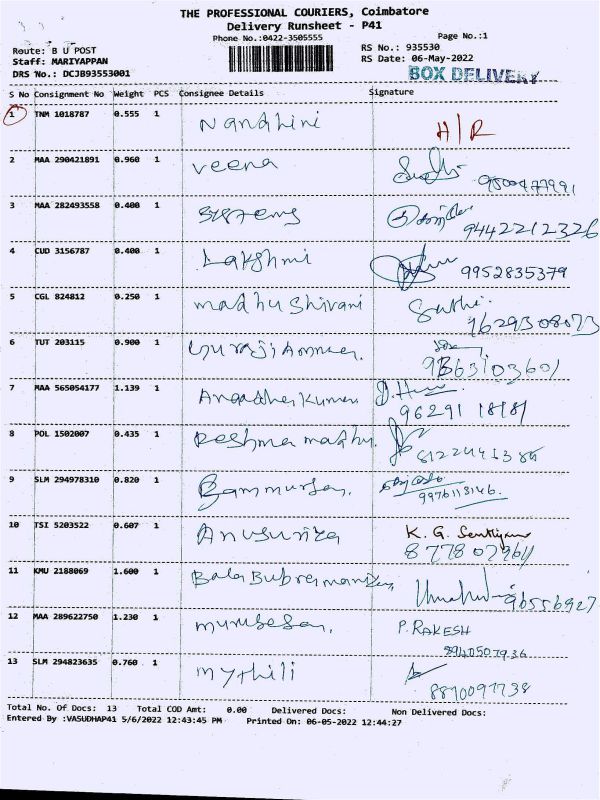 THE PROFESSIONAL COURIERS, Coimbatore
Delivery Runsheet - P41
Phone No.:0422-3505555
Page No.:1
Route: B U POST
RS No.: 935530
Staff: MARIYAPPAN
RS Date: 06-May-2022
DRS No.: DCJB93553001
BOX DELIVERY
S No Consignment No Weight PCS Consignee Details Signature
1 TNM 1018787 0.555 1 Nandhini H/R
2 MAA 290421891 0.960 1 veena
9500477991
3 MAA 282493558 0.400 1 systems
9442212326
4 CUD 3156787 0.400 1 Lakshmi 9952835379
5 CGL 824812 0.250 1 madhu Shivani
6 TUT 203115 0.900 1
7 MAA 565054177 1.139 1
96291 18181
8 POL 1502007 0.435 1 Reshma madhu.
9 SLM 294978310 0.820 1
9976113146.
10 TSI 5203522 0.607 1 K. G.
11 KMU 2188069 1.600 1
12 MAA 289622750 1.230 1 P. RAKESH
13 SLM 294823635 0.760 1 mythili
Total No. Of Docs: 13 Total COD Amt: 0.00 Delivered Docs: Non Delivered Docs:
Entered By :VASUDHAP41 5/6/2022 12:43:45 PM Printed On: 06-05-2022 12:44:27